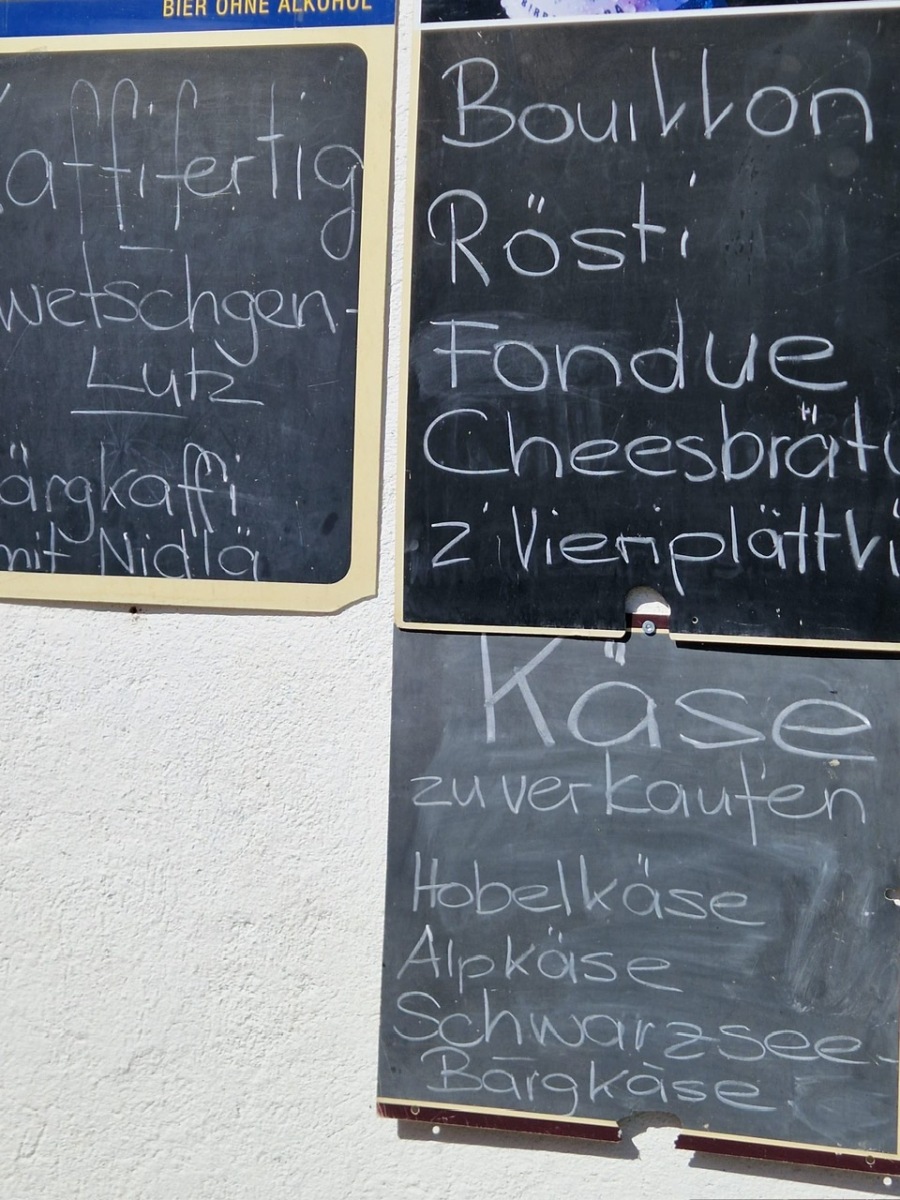 BIER OHNE ALKOHOL
Kaffifertig
wetschgen-
Lutz
ärgkaffi
mit Nidlä
Bouillon
Rösti
Fondue
Cheesbrät
z'Vieriplättli
Käse
zu verkaufen
Hobelkäse
Alpkäse
Schwarzsee-
Bärgkäse